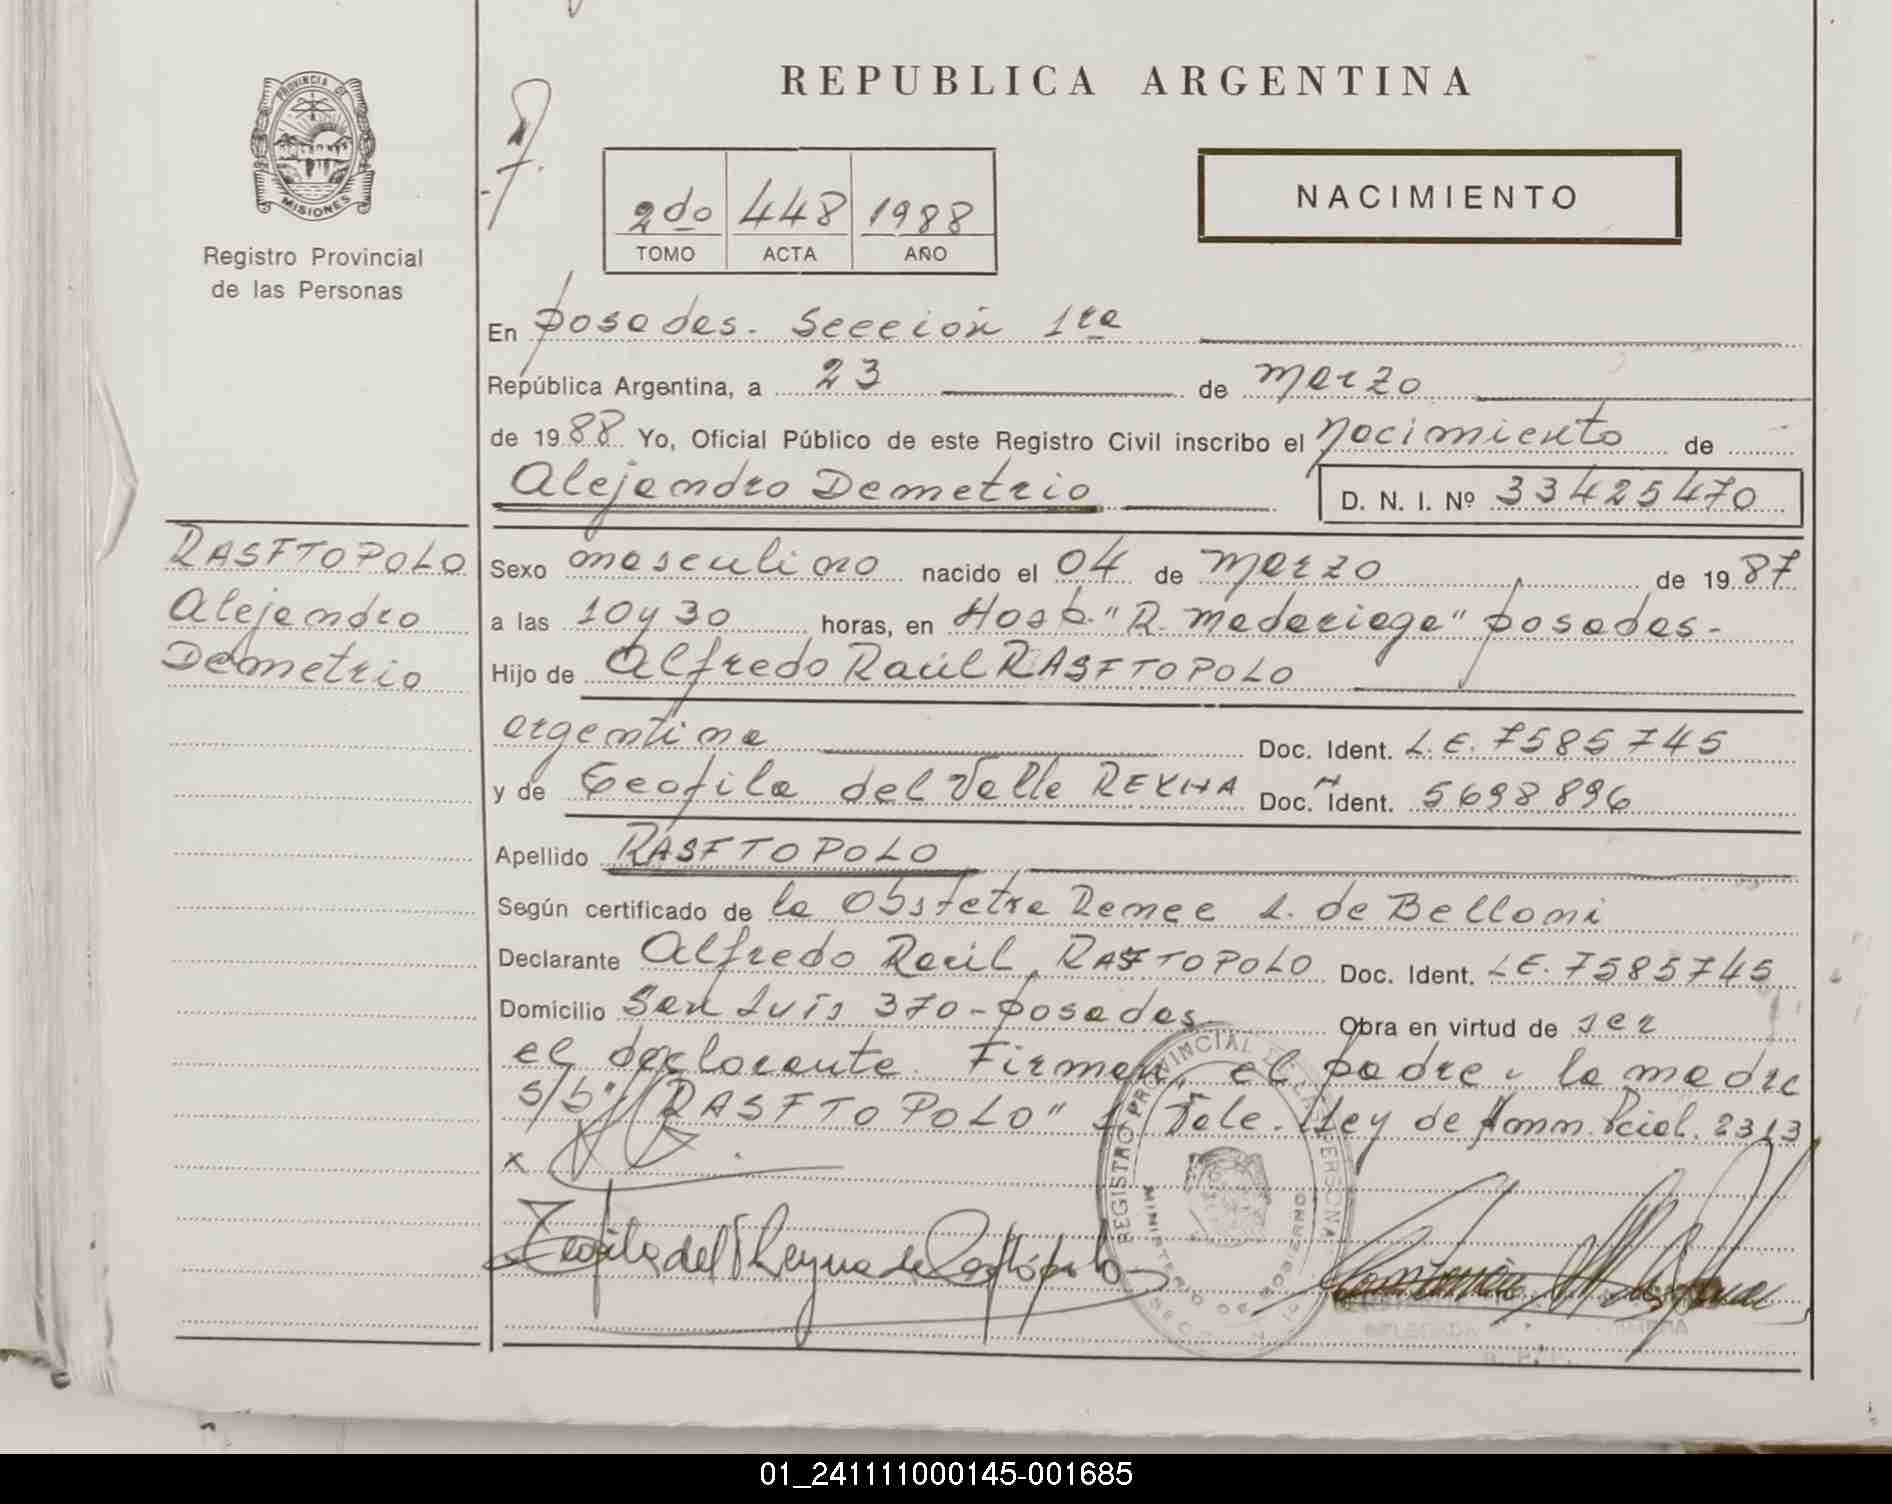 PROVINCIA DE
MISIONES
Registro Provincial
de las Personas
REPUBLICA ARGENTINA
2do 448 1988
TOMO ACTA AÑO
NACIMIENTO
En Posadas. Sección 1ra
República Argentina, a 23 de Marzo
de 1988 Yo, Oficial Público de este Registro Civil inscribo el Nacimiento de
Alejandro Demetrio D. N. I. Nº 33425470
RASFTOPOLO
Alejandro
Demetrio
Sexo masculino nacido el 04 de Marzo de 1987
a las 10 y 30 horas, en Hosp. "R. Madariaga" Posadas-
Hijo de Alfredo Raúl RASFTOPOLO
argentina Doc. Ident. L.E. 7585745
y de Teofila del Valle REYNA Doc. Ident. 5698896
Apellido RASFTOPOLO
Según certificado de la Obstetra Renee L. de Belloni
Declarante Alfredo Raúl RASFTOPOLO Doc. Ident. L.E. 7585745
Domicilio San Luis 370-Posadas Obra en virtud de ser
el declarante. Firman, el padre y la madre
s/b "RASFTOPOLO" Vale. Ley de Amn. Pcial. 2313
x
Teofila del V Reyna de Rasftópolo
REGISTRO PROVINCIAL DE LAS PERSONAS
MINISTERIO DE GOBIERNO
DELEGADA
01_241111000145-001685